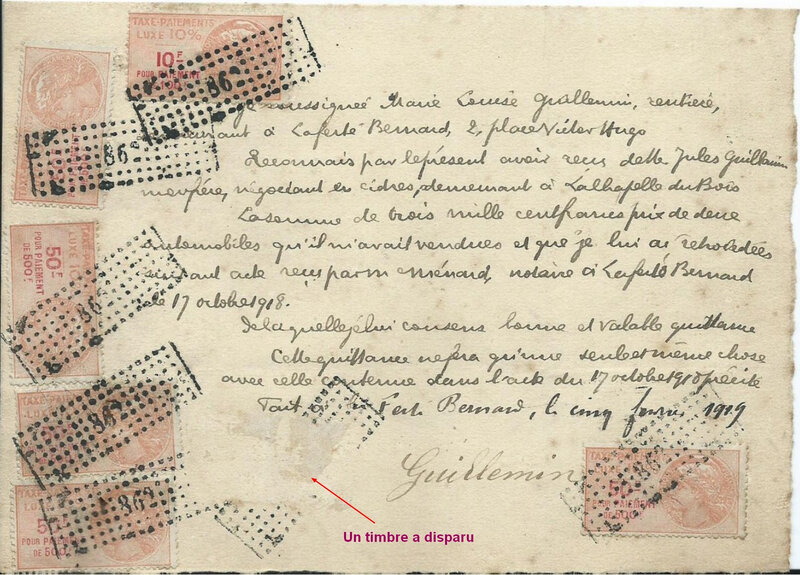 TAXE-PAIEMENTS
LUXE 10%
10F
POUR PAIEMENT
100F
862
Je soussignée Marie Louise Guillemin, rentière,
demeurant à Laferté Bernard, 2, place Victor Hugo
862
Reconnais par le présent avoir reçu de Mr Jules Guillemin
mon frère, négociant en cidres, demeurant à Lachapelle du Bois
La somme de trois mille cent francs prix de deux
automobiles qu'il m'avait vendues et que je lui ai rétrocédées
suivant acte reçu par Me Ménard, notaire à Laferté Bernard
le 17 octobre 1918.
TAXE-PAIEMENTS
LUXE 10%
50F
POUR PAIEMENT
DE 500F
862
De laquelle je lui consens bonne et valable quittance
Cette quittance ne fera qu'une seule et même chose
avec celle contenue dans l'acte du 17 octobre 1918 précité
Fait à La Ferté Bernard, le cinq février 1919
Guillemin
862
TAXE-PAIEMENTS
LUXE
50F
POUR PAIEMENT
DE 500F
862
862
50F
POUR PAIEMENT
DE 500F
Un timbre a disparu